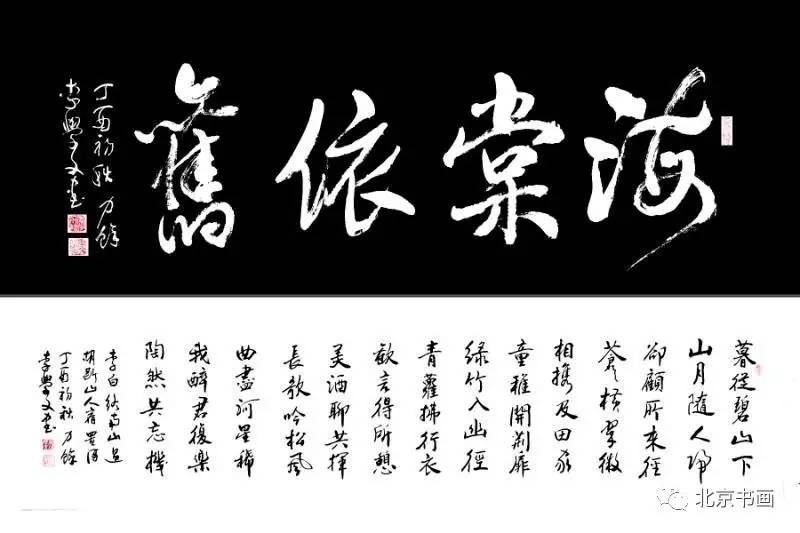 海棠依舊
丁酉初秋
李學文書
暮從碧山下
山月隨人歸
卻顧所來徑
蒼々橫翠微
相攜及田家
童稚開荊扉
綠竹入幽徑
青蘿拂行衣
歡言得所憩
美酒聊共揮
長歌吟松風
曲盡河星稀
我醉君復樂
陶然共忘機
李白終南山過
斛斯山人宿置酒
丁酉初秋
李學文書
北京书画